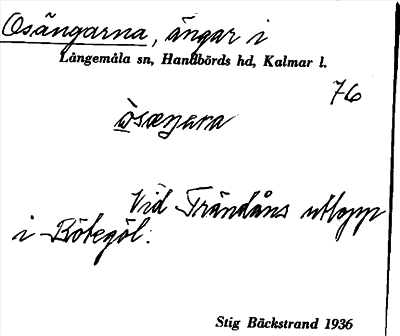 Osängarna, ängar i
Långemåla sn, Handbörds hd, Kalmar l.
76
Vid Trändåns utlopp
i Bötegöl.
Stig Bäckstrand 1936